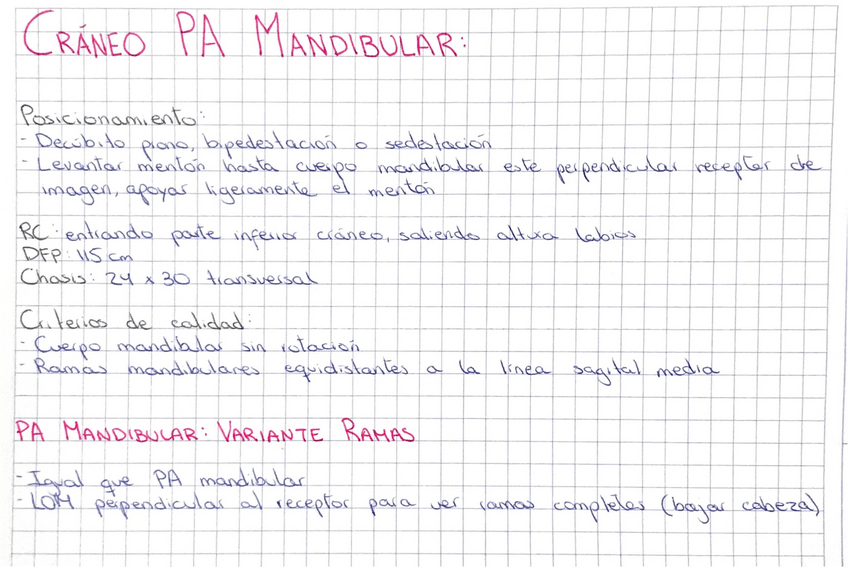 CRÁNEO PA MANDIBULAR:
Posicionamiento:
- Decúbito prono, bipedestación o sedestación
- Levantar mentón hasta cuerpo mandibular este perpendicular receptor de
imagen, apoyar ligeramente el mentón
RC: entrando parte inferior cráneo, saliendo altura labios
DFP: 115 cm
Chasis: 24 x 30 transversal
Criterios de calidad:
- Cuerpo mandibular sin rotación
- Ramas mandibulares equidistantes a la línea sagital media
PA MANDIBULAR: VARIANTE RAMAS
- Igual que PA mandibular
- LOM perpendicular al receptor para ver ramas completas (bajar cabeza)